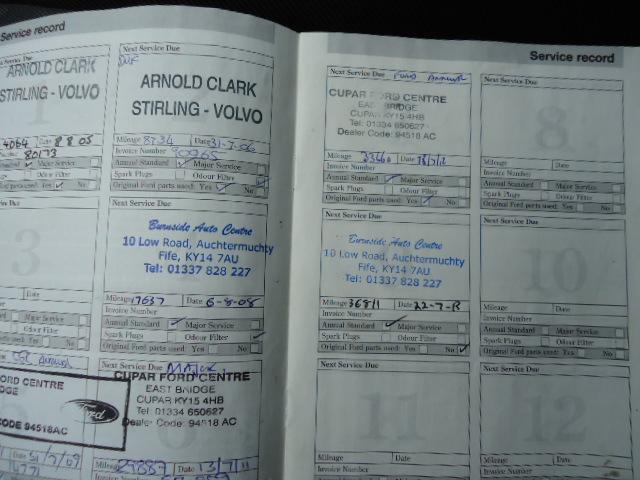 Service record
ARNOLD CLARK
STIRLING - VOLVO
4064 8 8 05
80173
Major Service
Odour Filter
Yes ✓ No
3
Date
Major Service
Odour Filter
Yes No
FORD CENTRE
Ford
CODE 94518AC
31/7/09
Next Service Due
ARNOLD CLARK
STIRLING - VOLVO
Mileage 8734 Date 31-7-06
Invoice Number 90965
Annual Standard ✓ Major Service
Spark Plugs Odour Filter
Original Ford parts used: Yes ✓ No
Next Service Due
Burnside Auto Centre
10 Low Road, Auchtermuchty
Fife, KY14 7AU
Tel: 01337 828 227
Mileage 17637 Date 6-8-08
Invoice Number
Annual Standard ✓ Major Service
Spark Plugs Odour Filter
Original Ford parts used: Yes No
Next Service Due MAJOR
CUPAR FORD CENTRE
EAST BRIDGE
CUPAR KY15 4HB
Tel: 01334 650627
Dealer Code: 94518 AC
Mileage 29887 Date 13/7/11
Service record
Next Service Due
CUPAR FORD CENTRE
EAST BRIDGE
CUPAR KY15 4HB
Tel: 01334 650627
Dealer Code: 94518 AC
Mileage Date
Invoice Number
Annual Standard ✓ Major Service
Spark Plugs Odour Filter
Original Ford parts used: Yes ✓ No
8
Next Service Due
Mileage Date
Invoice Number
Annual Standard Major Service
Spark Plugs Odour Filter
Original Ford parts used: Yes No
Next Service Due
Burnside Auto Centre
10 Low Road, Auchtermuchty
Fife, KY14 7AU
Tel: 01337 828 227
Mileage 36811 Date 22-7-13
Invoice Number
Annual Standard ✓ Major Service
Spark Plugs Odour Filter
Original Ford parts used: Yes No ✓
Next Service Due
10
Mileage Date
Invoice Number
Annual Standard Major Service
Spark Plugs Odour Filter
Original Ford parts used: Yes No
Next Service Due
11
Mileage Date
Invoice Number
Next Service Due
12
Mileage Date
Invoice Number